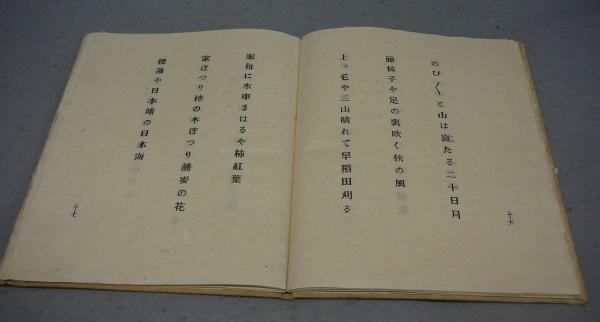 のび〳〵と山は寝たる二十日月
籐椅子や足の裏吹く秋の風
上ッ毛や三山晴れて早稲田刈る
十六
家毎に水車まはるや柿紅葉
家ぽつり柿の木ぽつり蕎麥の花
穂薄や日本晴の日本海
十七